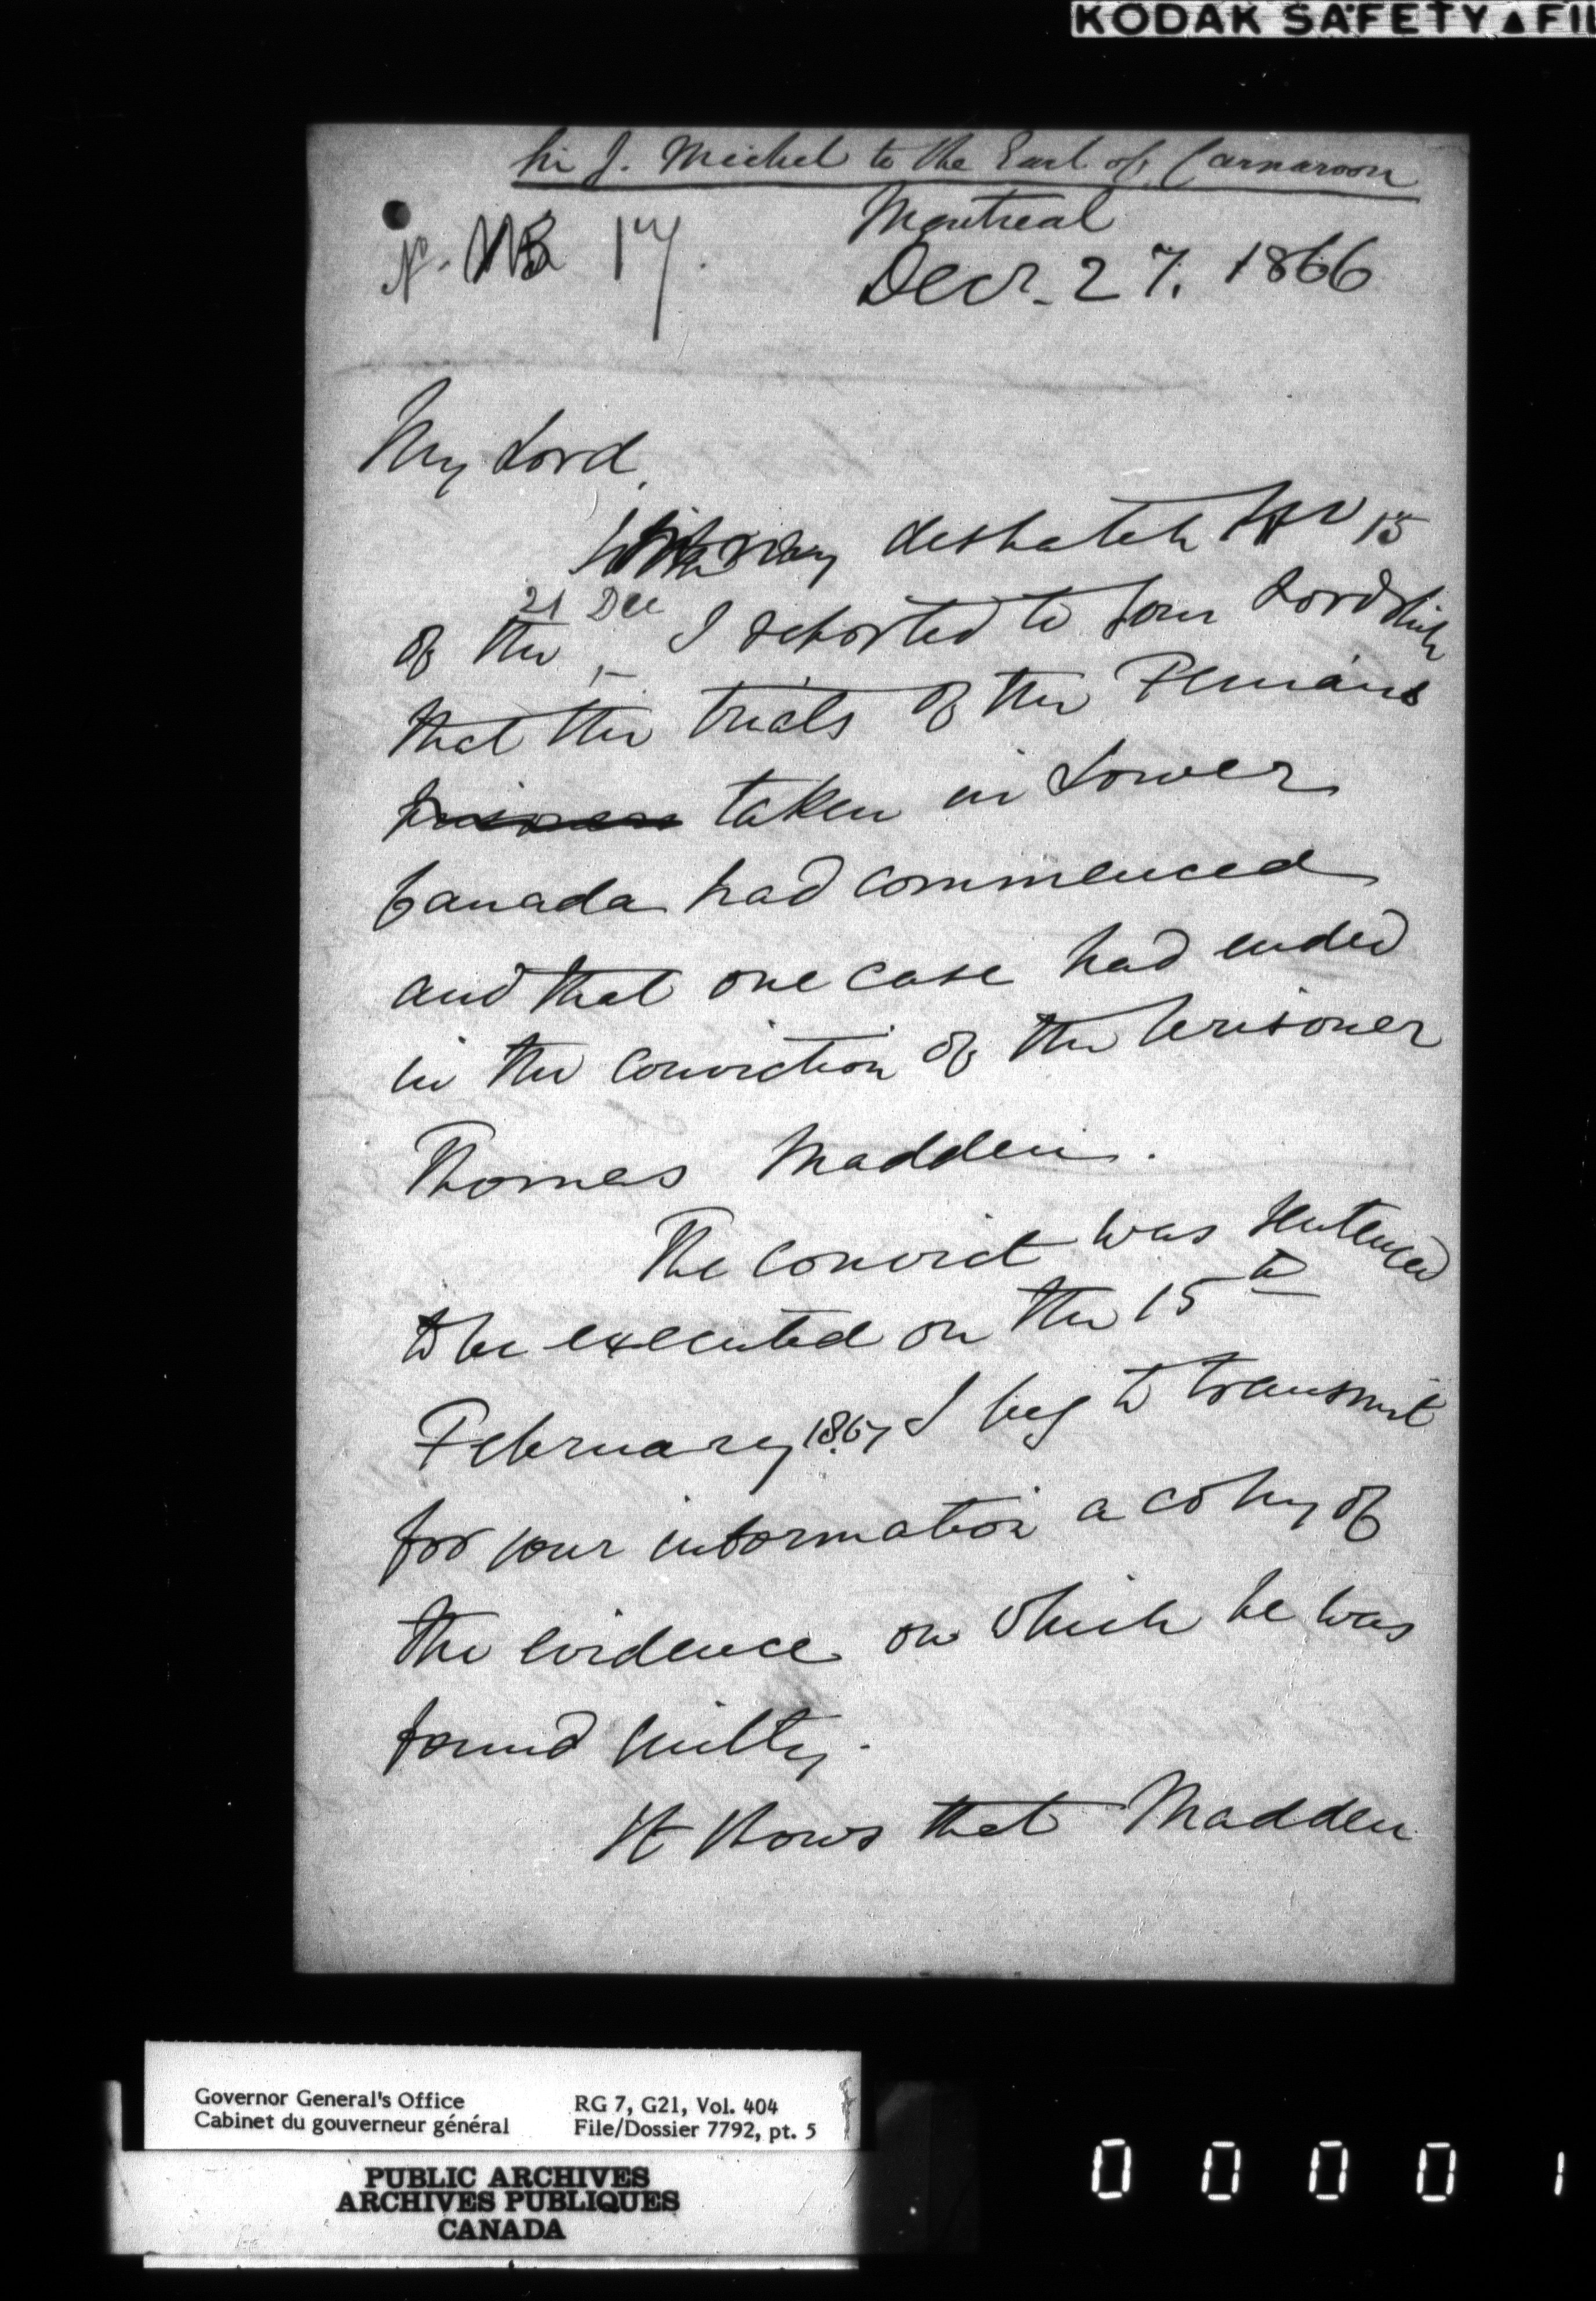 KODAK SAFETY ▲ FIL
Sir J. Michel to the Earl of Carnarvon
No. 17.
Montreal
Decr. 27. 1866
My Lord,
my despatch No 15
of the 21 Dec I reported to Your Lordship
that the trials of the Fenians
prisoners taken in Lower
Canada had commenced
and that one case had ended
in the conviction of the prisoner
Thomas Madden.
The convict was sentenced
to be executed on the 15th
February 1867 I beg to transmit
for your information a copy of
the evidence on which he was
found guilty.
It shows that Madden
Governor General's Office
Cabinet du gouverneur général
RG 7, G21, Vol. 404
File/Dossier 7792, pt. 5
PUBLIC ARCHIVES
ARCHIVES PUBLIQUES
CANADA
0 0 0 0 1